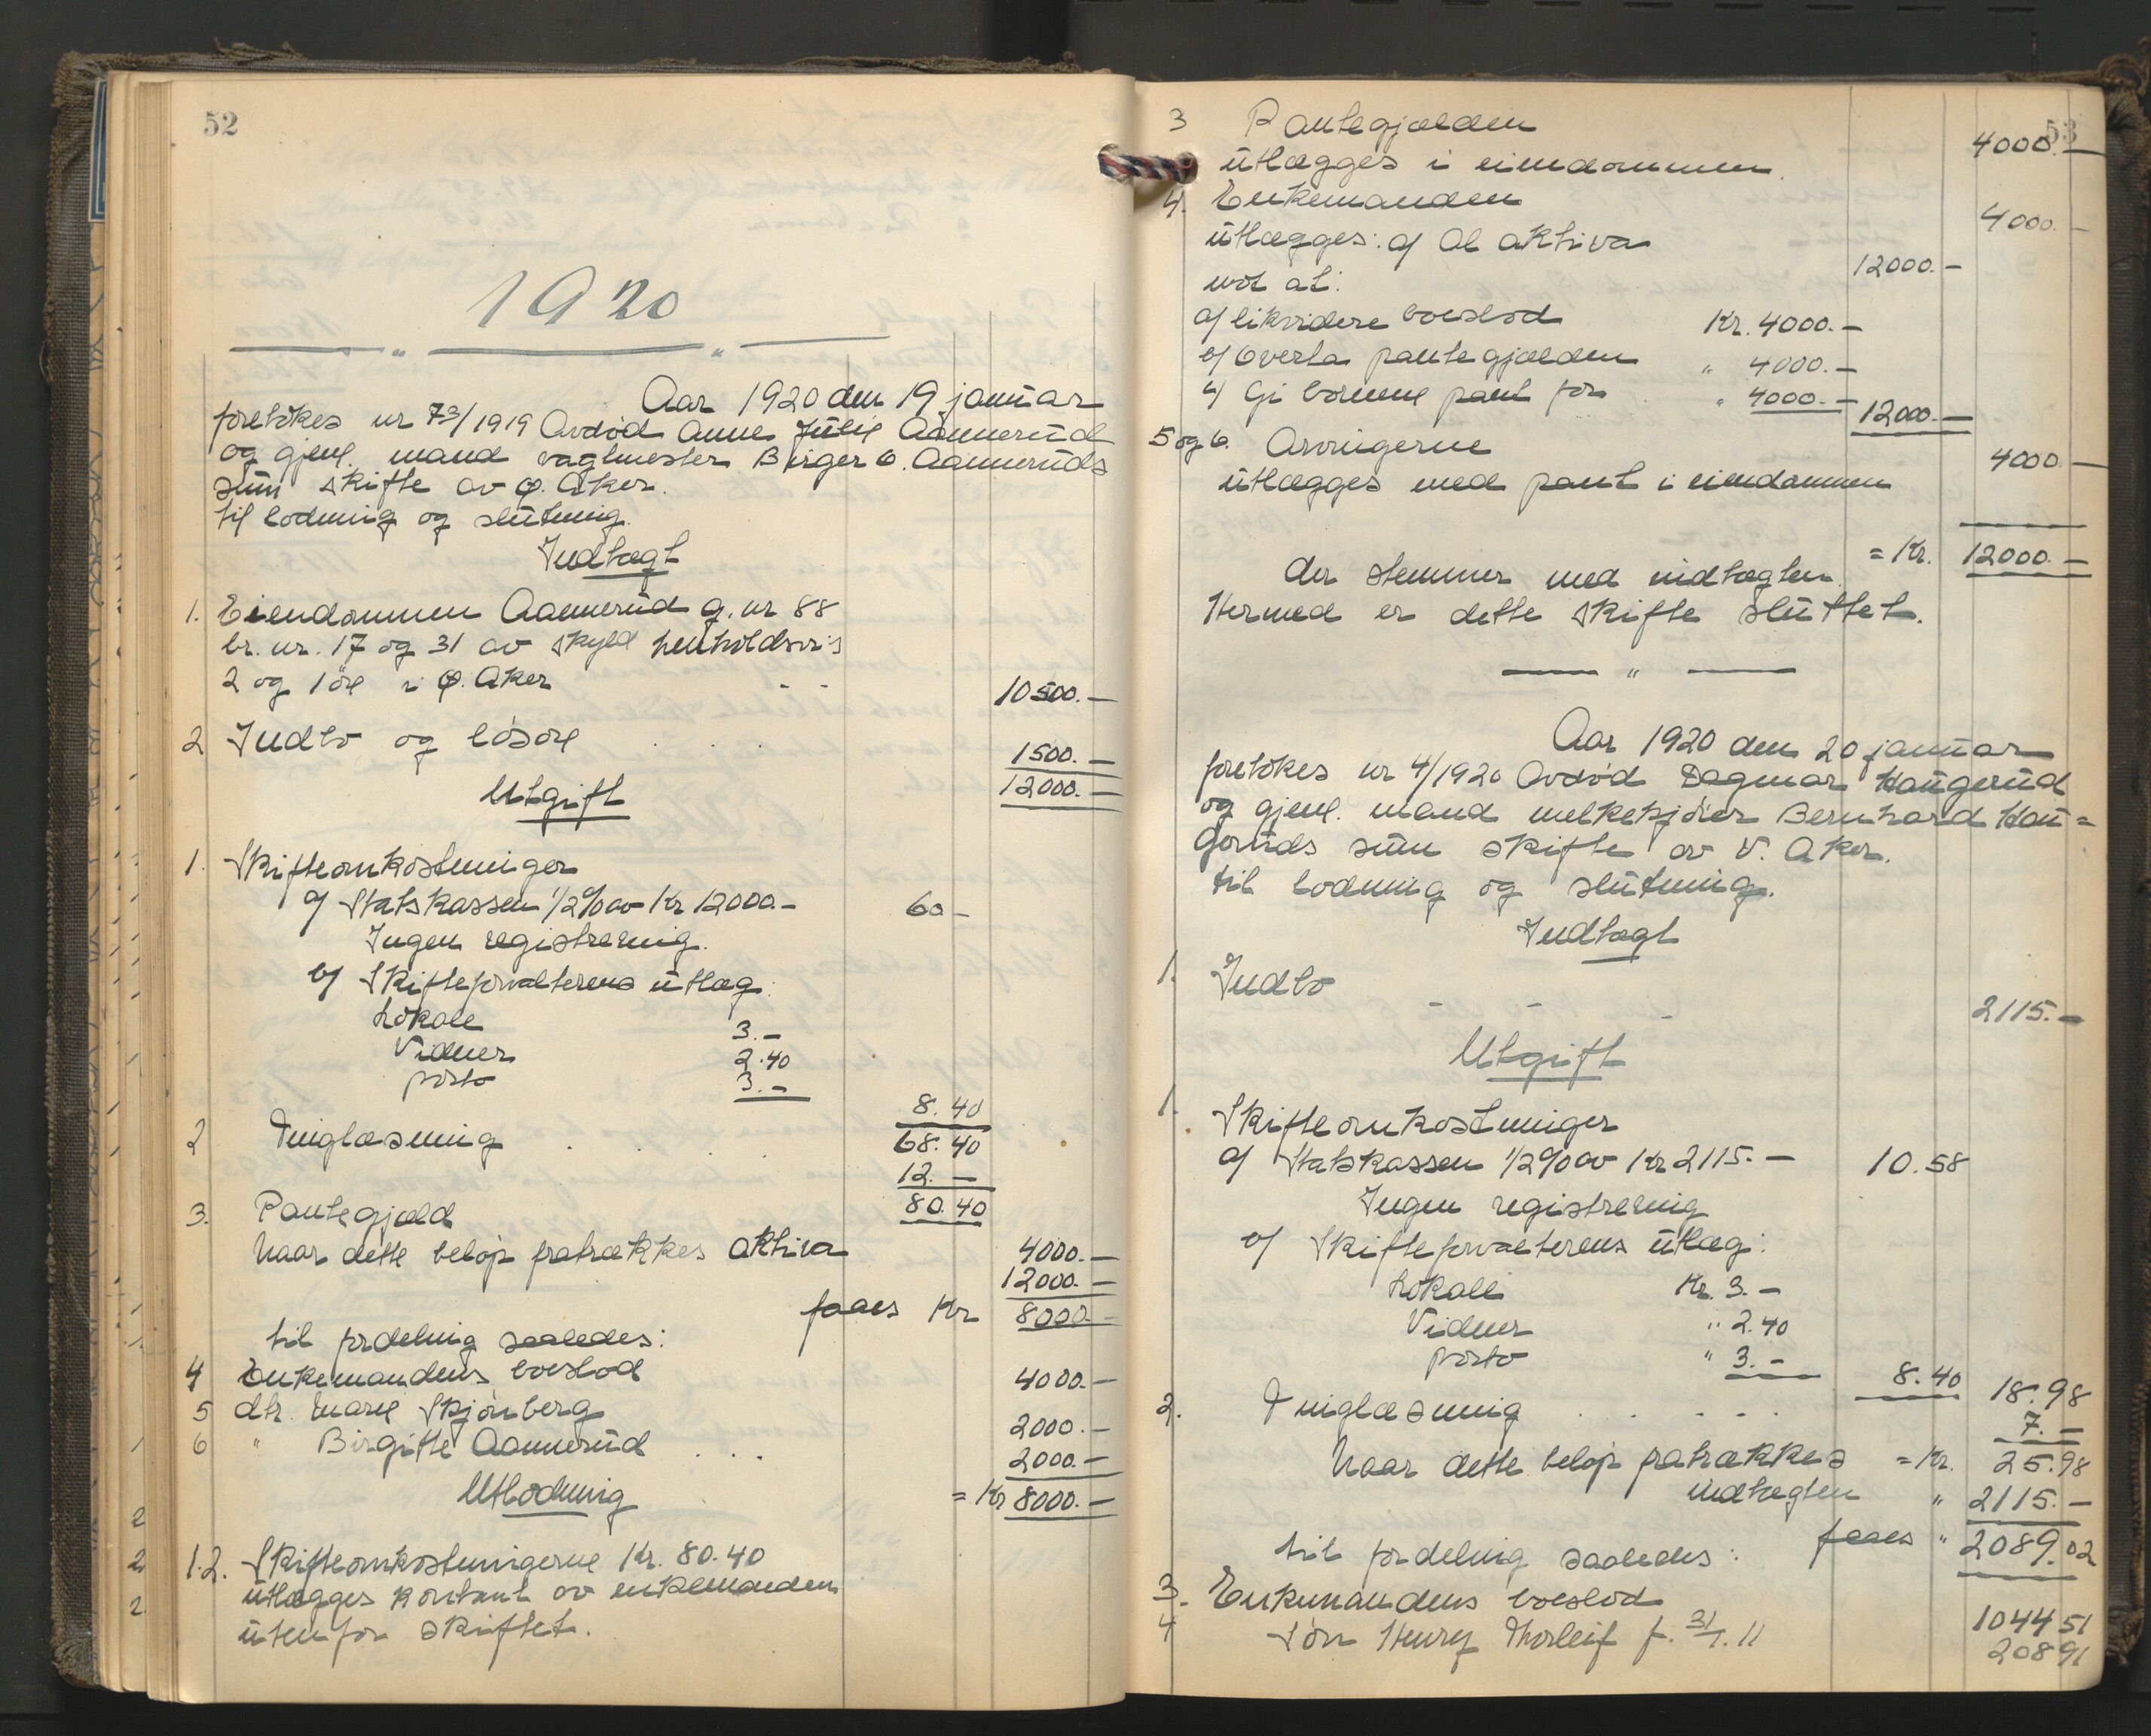 52
1920
Aar 1920 den 19 januar
foretokes nr 73/1919 Avdød Anne Julie Aamerud
og gjenl. mand vagtmester Birger O. Aameruds
sum skifte av Ø. Aker.
til lodning og slutning.
Indtægt
1. Eiendommen Aamerud g. nr 88
br. nr. 17 og 31 av skyld henholdsvis
2 og 1 øre i Ø. Aker - - 10500.-
2 Indbo og løsøre . . . 1500.-
12000.-
Utgift
1. Skifteomkostninger
a/ Statskassen 1/2% av Kr 12000.- 60-
Ingen registrering.
b/ Skifteforvalterens utlæg:
Lokale 3.-
Vidner 2.40
porto 3.-
8.40
68.40
2 Tinglæsning . . . 12.-
80.40
3. Pantegjæld 4000.-
Naar dette beløp fratrækkes aktiva 12000.-
faaes Kr 8000.-
til fordeling saaledes:
4 Enkemandens boeslod 4000.-
5 dtr. Marie Skjønberg 2000.-
6 " Birgitte Aamerud . . . 2000.-
= Kr 8000.-
Utlodning
1.2. Skifteomkostningerne Kr. 80.40
utlægges kontant av enkemanden
utenfor skiftet.
53
3 Pantegjælden 4000.-
utlægges i eiendommen.
4. Enkemanden 4000.-
utlægges: a/ Al aktiva 12000.-
mot at:
a/ likvidere boeslod Kr. 4000.-
b/ Overta pantegjælden " 4000.-
c/ Gi børnene pant for " 4000.- 12000.-
5 og 6. Arvingerne 4000.-
utlægges med pant i eiendommen
= Kr. 12000.-
der stemmer med indtægten.
Hermed er dette skifte sluttet.
Aar 1920 den 20 januar
foretokes nr 4/1920 Avdød Dagmar Haugerud
og gjenl. mand melkekjører Bernhard Hau=
geruds sum skifte av V. Aker.
til lodning og slutning.
Indtægt
1. Indbo - - - 2115.-
Utgift
1. Skifteomkostninger
a/ Statskassen 1/2% av Kr 2115.- 10.58
Ingen registrering
b/ Skifteforvalterens utlæg:
Lokale Kr. 3.-
Vidner " 2.40
porto " 3.- 8.40 18.98
2. Tinglæsning . . . . 7.-
Naar dette beløp fratrækkes = Kr. 25.98
indtægten " 2115.-
faaes " 2089.02
til fordeling saaledes:
3. Enkemandens boeslod 1044 51
4 Søn Henry Thorleif f. 31/1. 11 208 91